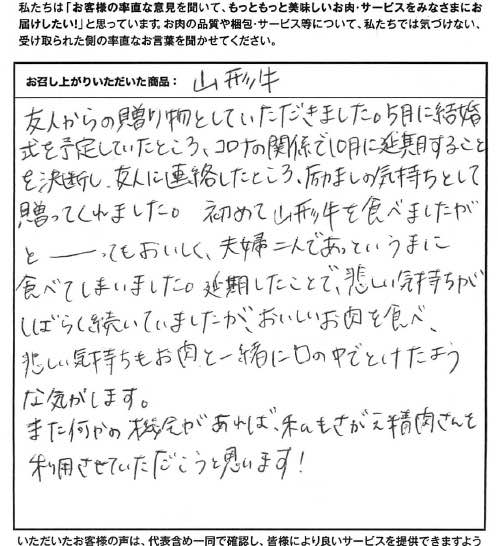 私たちは「お客様の率直な意見を聞いて、もっともっと美味しいお肉・サービスをみなさまにお
届けしたい！」と思っています。お肉の品質や梱包・サービス等について、私たちでは気づけない、
受け取られた側の率直なお言葉を聞かせてください。
お召し上がりいただいた商品： 山形牛
友人からの贈り物としていただきました。5月に結婚
式を予定していたところ、コロナの関係で10月に延期すること
を決断し、友人に連絡したところ、励ましの気持ちとして
贈ってくれました。 初めて山形牛を食べましたが
と──ってもおいしく、夫婦二人であっというまに
食べてしまいました。延期したことで、悲しい気持ちが
しばらく続いていましたが、おいしいお肉を食べ、
悲しい気持ちもお肉と一緒に口の中でとけたよう
な気がします。
また何かの機会があれば、私もさがえ精肉さんを
利用させていただこうと思います！
いただいたお客様の声は、代表含め一同で確認し、皆様により良いサービスを提供できますよう